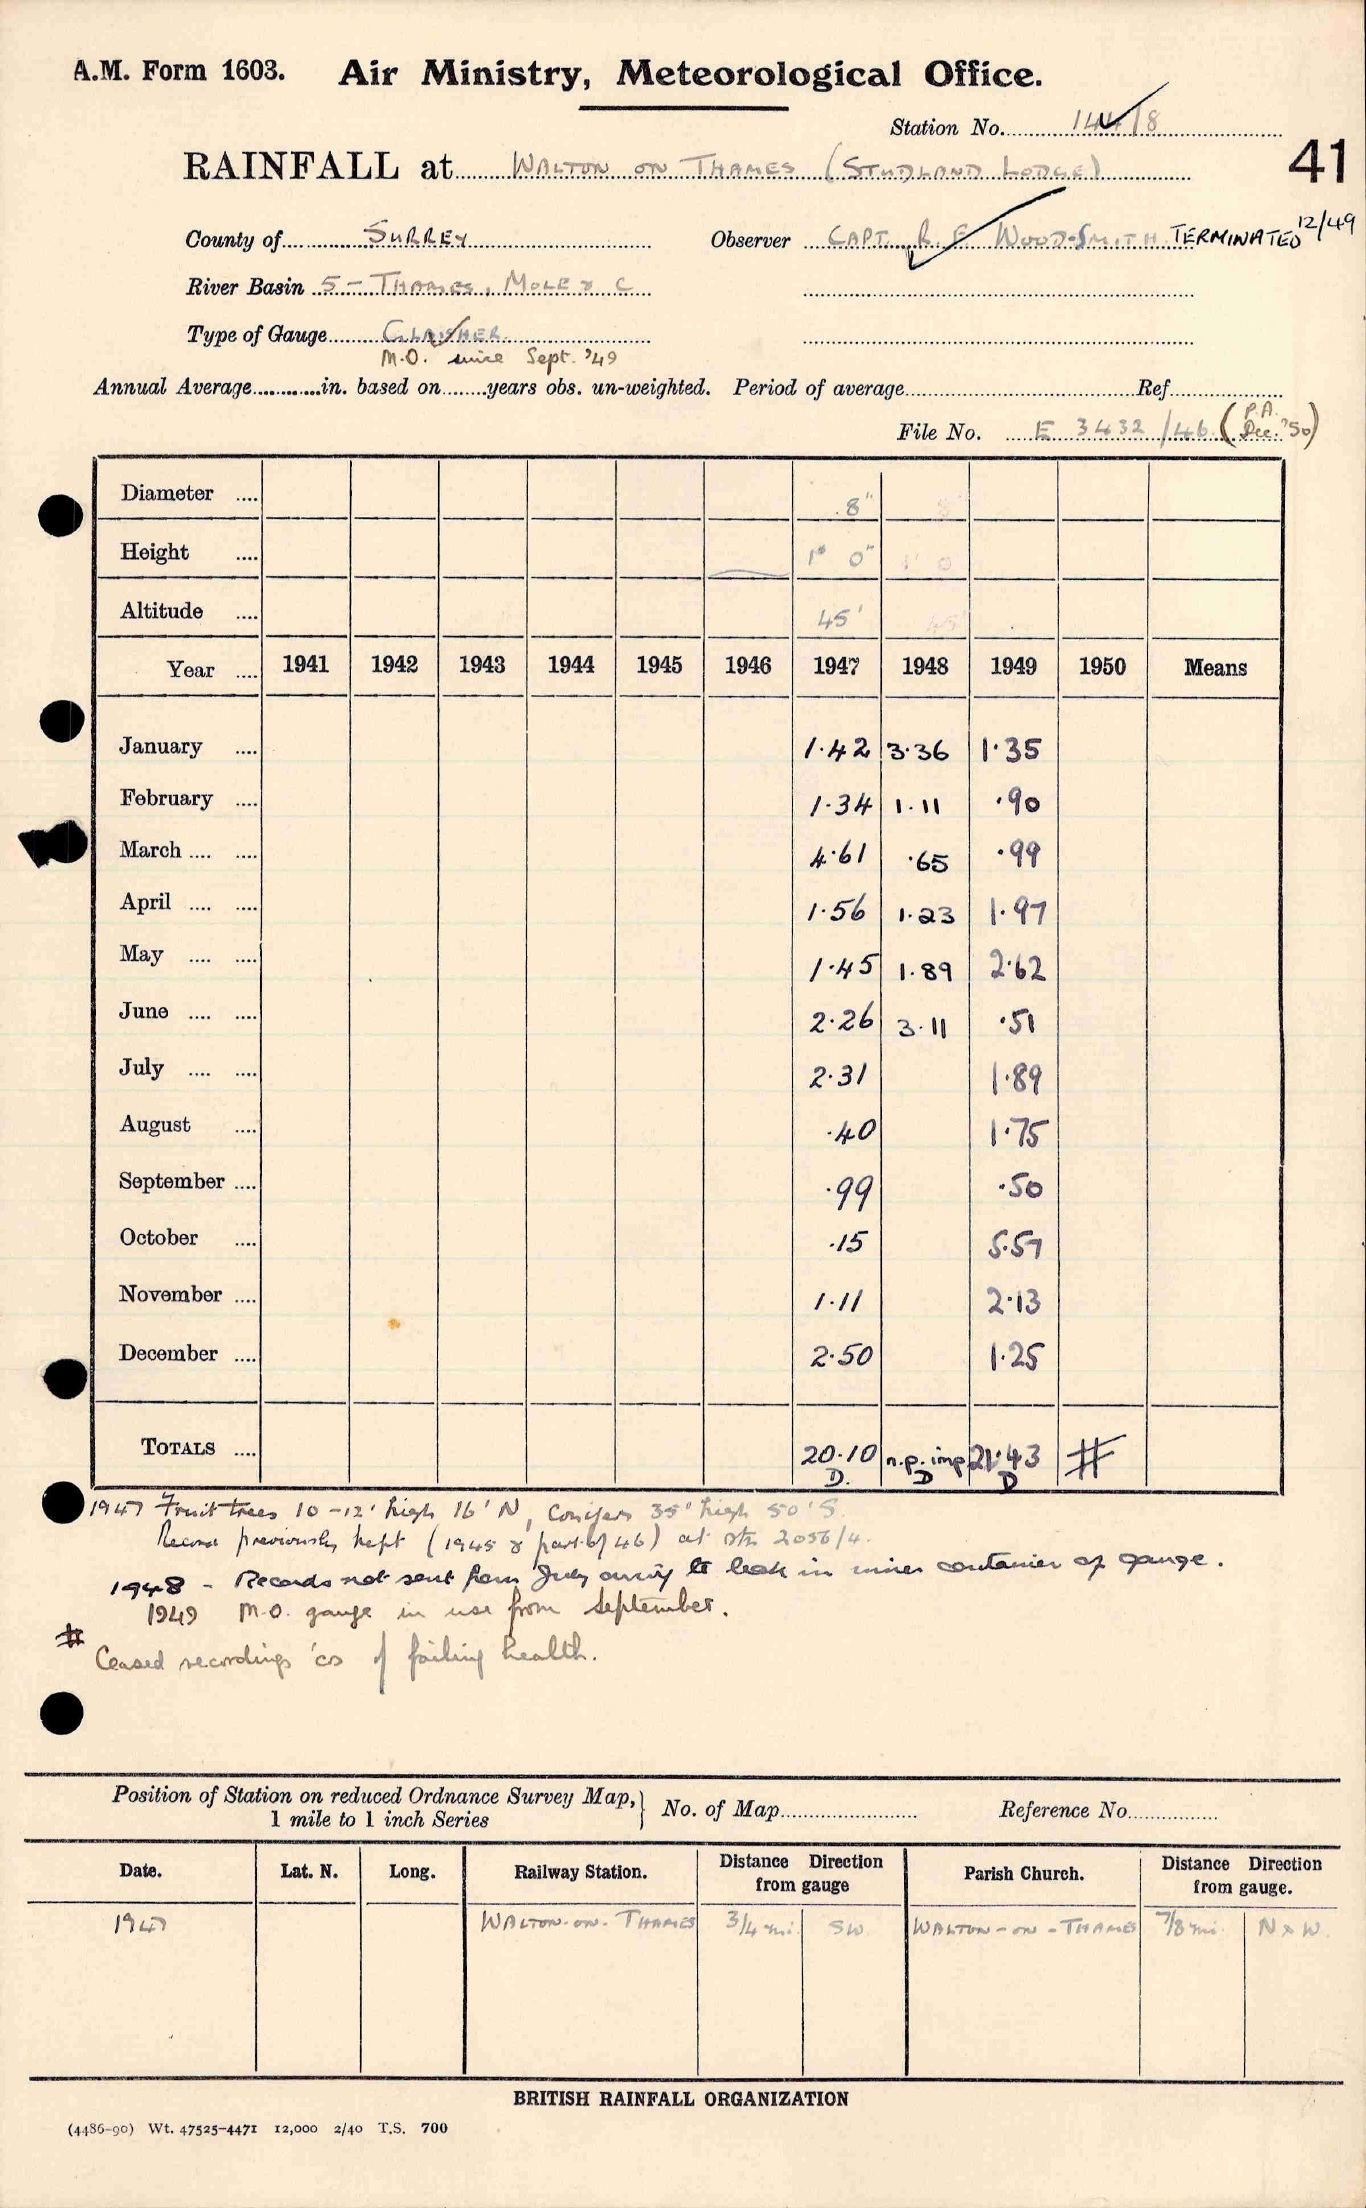 A.M. Form 1603. Air Ministry, Meteorological Office.
Station No. 144/8
41
RAINFALL at WALTON ON THAMES (STUDLAND LODGE)
County of SURREY Observer CAPT. R. E. WOOD-SMITH TERMINATED 12/49
River Basin 5 - THAMES, MOLE & C
Type of Gauge GLAISHER.
M.O. since Sept. '49
Annual Average............in. based on........years obs. un-weighted. Period of average............Ref............
File No. E 3432/46 (P.A. Dec. '50)
Diameter .... 8" 8"
Height .... 1' 0" 1' 0
Altitude .... 45' 45'
Year .... 1941 1942 1943 1944 1945 1946 1947 1948 1949 1950 Means
January .... 1.42 3.36 1.35
February .... 1.34 1.11 .90
March .... .... 4.61 .65 .99
April .... .... 1.56 1.23 1.97
May .... .... 1.45 1.89 2.62
June .... .... 2.26 3.11 .51
July .... .... 2.31 1.89
August .... .40 1.75
September .... .99 .50
October .... .15 5.57
November .... 1.11 2.13
December .... 2.50 1.25
TOTALS .... 20.10 n.p. imp 21.43 #
D. D D
1947 Fruit trees 10-12' high 16' N, Conifers 35' high 50' S.
Record previously kept (1945 & part of 46) at stn 2056/4.
1948 - Records not sent from July owing to leak in inner container of gauge.
1949 M.O. gauge in use from September.
# Ceased recordings 'cos of failing health.
Position of Station on reduced Ordnance Survey Map,} No. of Map............ Reference No............
1 mile to 1 inch Series
Date. Lat. N. Long. Railway Station. Distance Direction from gauge Parish Church. Distance Direction from gauge.
1947 WALTON-ON-THAMES 3/4 mi. SW WALTON-ON-THAMES 7/8 mi. N x W.
BRITISH RAINFALL ORGANIZATION
(4486-90) Wt. 47525-4471 12,000 2/40 T.S. 700